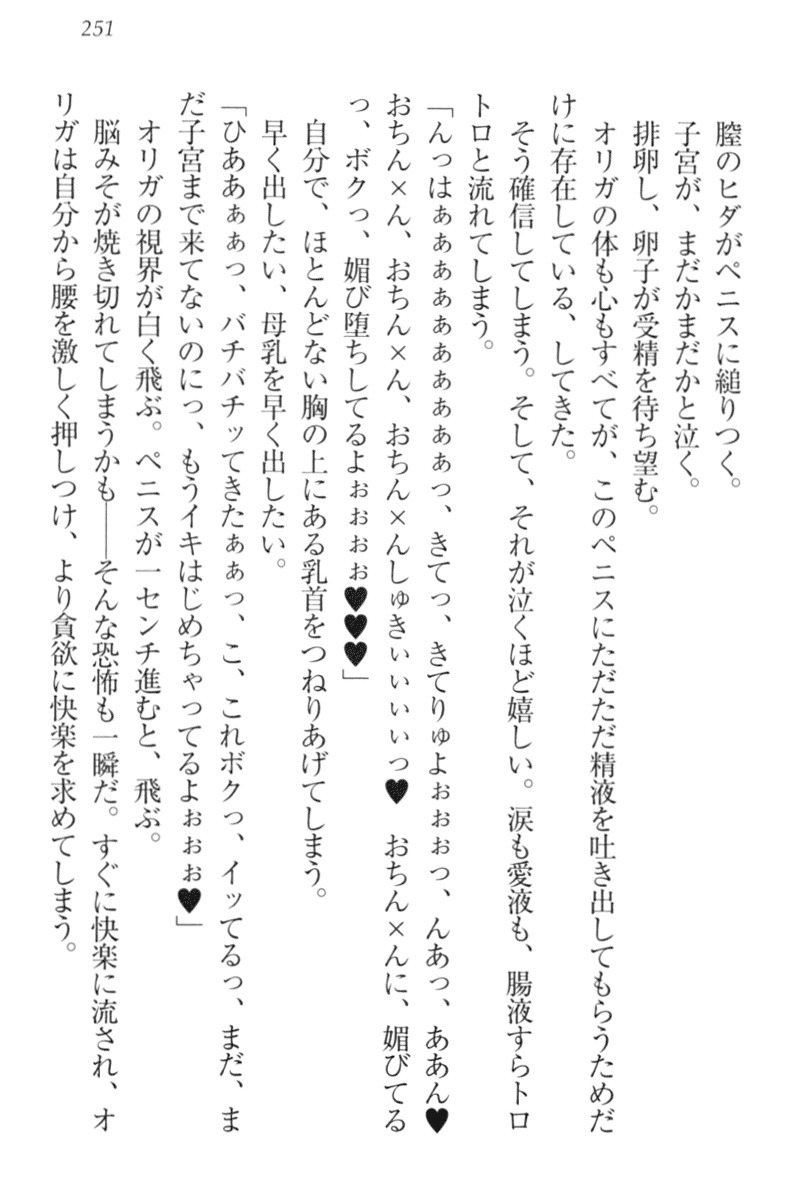 251
膣のヒダがペニスに縋りつく。
子宮が、まだかまだかと泣く。
排卵し、卵子が受精を待ち望む。
オリガの体も心もすべてが、このペニスにただただ精液を吐き出してもらうためだ
けに存在している、してきた。
そう確信してしまう。そして、それが泣くほど嬉しい。涙も愛液も、腸液すらトロ
トロと流れてしまう。
「んっはぁぁぁぁぁぁぁぁぁぁっ、きてっ、きてりゅよぉぉぉっ、んあっ、ああん♥
おちん×ん、おちん×ん、おちん×んしゅきぃぃぃぃっ♥　おちん×んに、媚びてる
っ、ボクっ、媚び堕ちしてるよぉぉぉぉ♥♥♥」
自分で、ほとんどない胸の上にある乳首をつねりあげてしまう。
早く出したい、母乳を早く出したい。
「ひああぁぁっ、バチバチッてきたぁぁっ、こ、これボクっ、イッてるっ、まだ、ま
だ子宮まで来てないのにっ、もうイキはじめちゃってるよぉぉぉ♥」
オリガの視界が白く飛ぶ。ペニスが一センチ進むと、飛ぶ。
脳みそが焼き切れてしまうかも――そんな恐怖も一瞬だ。すぐに快楽に流され、オ
リガは自分から腰を激しく押しつけ、より貪欲に快楽を求めてしまう。